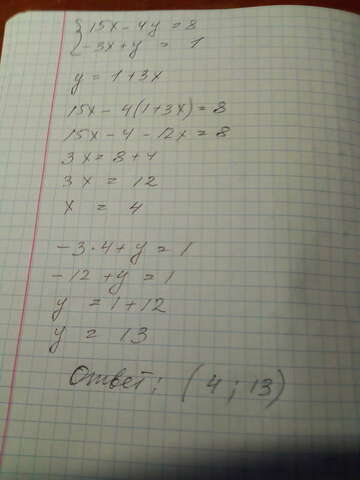 {15x - 4y = 8
-3x + y = 1
y = 1 + 3x
15x - 4(1 + 3x) = 8
15x - 4 - 12x = 8
3x = 8 + 4
3x = 12
x = 4
-3·4 + y = 1
-12 + y = 1
y = 1 + 12
y = 13
Ответ: (4; 13)